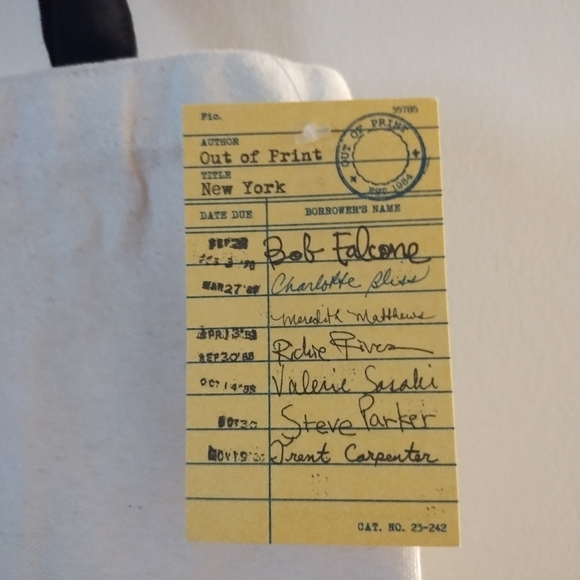 Fic. 59785
AUTHOR
Out of Print
TITLE
New York
OUT OF PRINT
EST 1984
DATE DUE BORROWER'S NAME
Bob Falcone
MAR 27 Charlotte Bliss
Meredith Matthews
APR 13
SEP 30 '88 Richie Rivera
OCT 14 '88 Valerie Sasaki
OCT 30 Steve Parker
NOV 19 Trent Carpenter
CAT. NO. 23-242